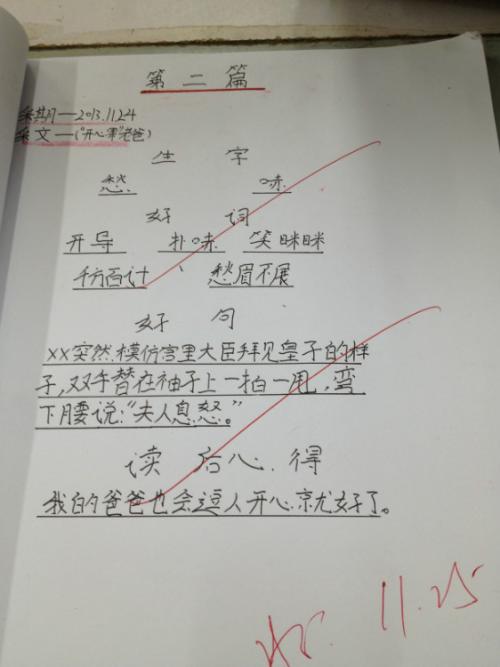 第二篇
采期—2013.11.24
采文—(“开心果”老爸)
生字
愁 哧
好词
开导 扑哧 笑眯眯
千方百计 、 愁眉不展
好句
XX突然模仿宫里大臣拜见皇子的样
子,双手替在袖子上一拍一甩,弯
下腰说:“夫人息怒。”
读后心得
我的爸爸也会逗人开心就好了。
11.25